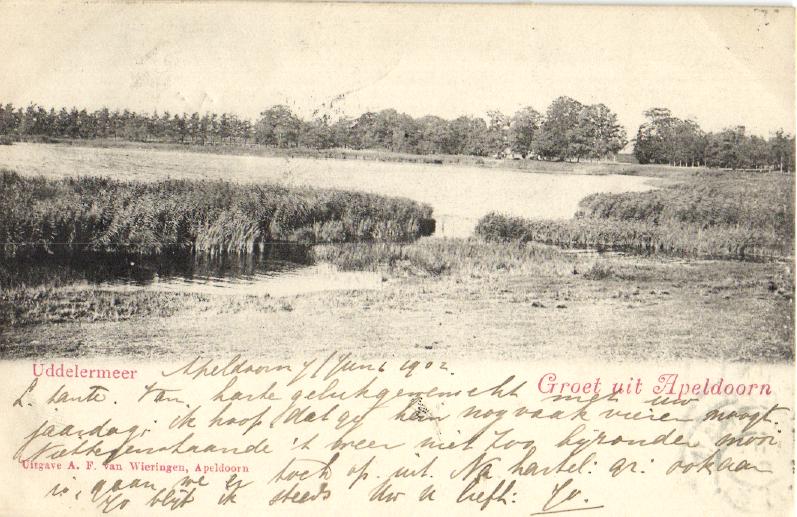 Uddelermeer
Apeldoorn 7/Juni 1902.
Groet uit Apeldoorn
L. tante. Van harte gelukgewenscht met uw
jaardag; ik hoop dat gij hem nog vaak vieren moogt.
Niettegenstaande 't weer niet zoo bijzonder mooi
Uitgave A. F. van Wieringen, Apeldoorn
is, gaan we er toch op uit. Na hartel: gr: ook aan
Jo blijf ik steeds Uw u liefh: